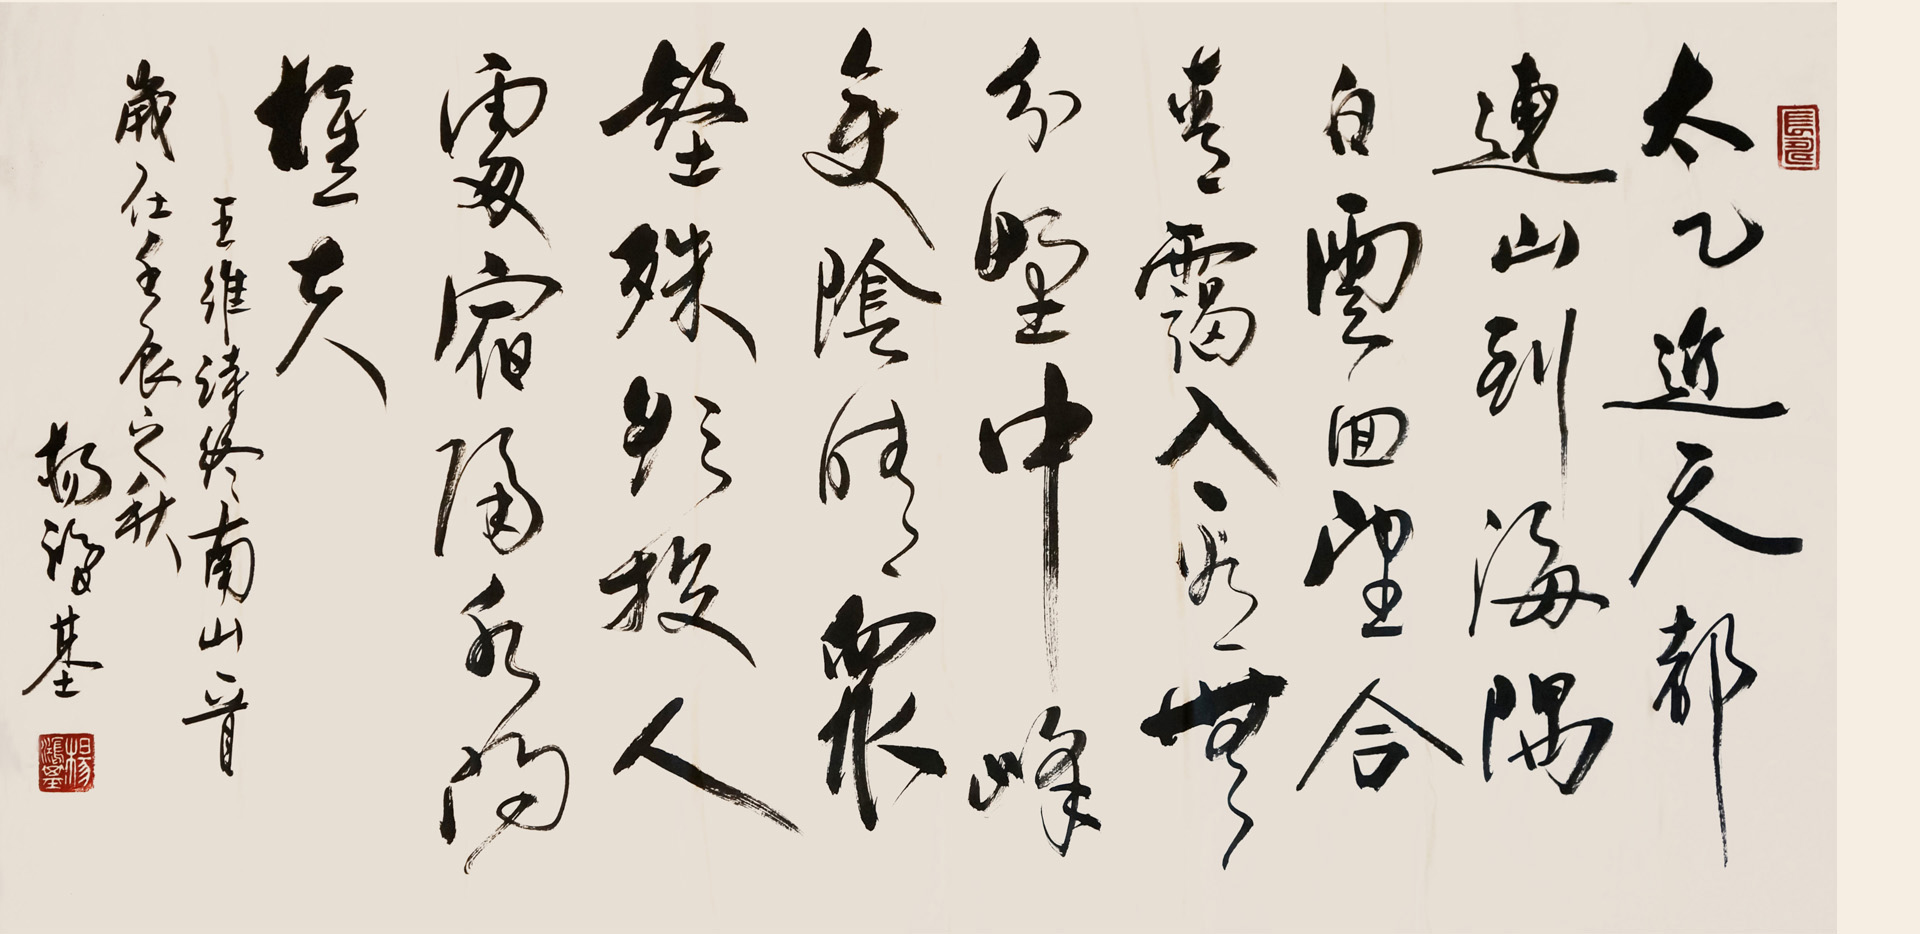 太乙近天都
連山到海隅
白雲回望合
青靄入看無
分野中峰
變陰晴衆
壑殊欲投人
處宿隔水問
樵夫
王維詩終南山一首
歲在壬辰之秋
楊基